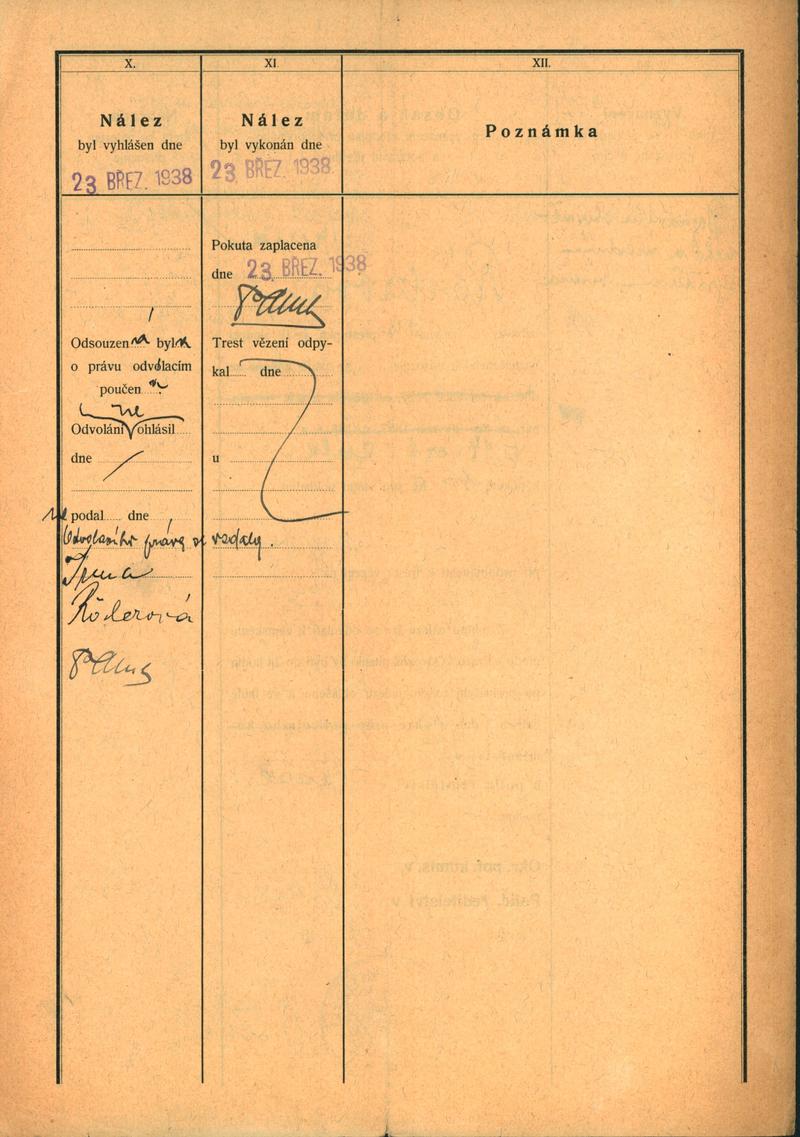 X.
Nález
byl vyhlášen dne
23 BŘEZ. 1938
Odsouzena byla
o právu odvolacím
poučena
ne
Odvolání ohlásil
dne
ne podal dne
Odvolacího práva se vzdaly.
Irma
Röderová
XI.
Nález
byl vykonán dne
23. BŘEZ. 1938
Pokuta zaplacena
dne 23. BŘEZ. 1938
Trest vězení odpy-
kal dne
u
XII.
Poznámka